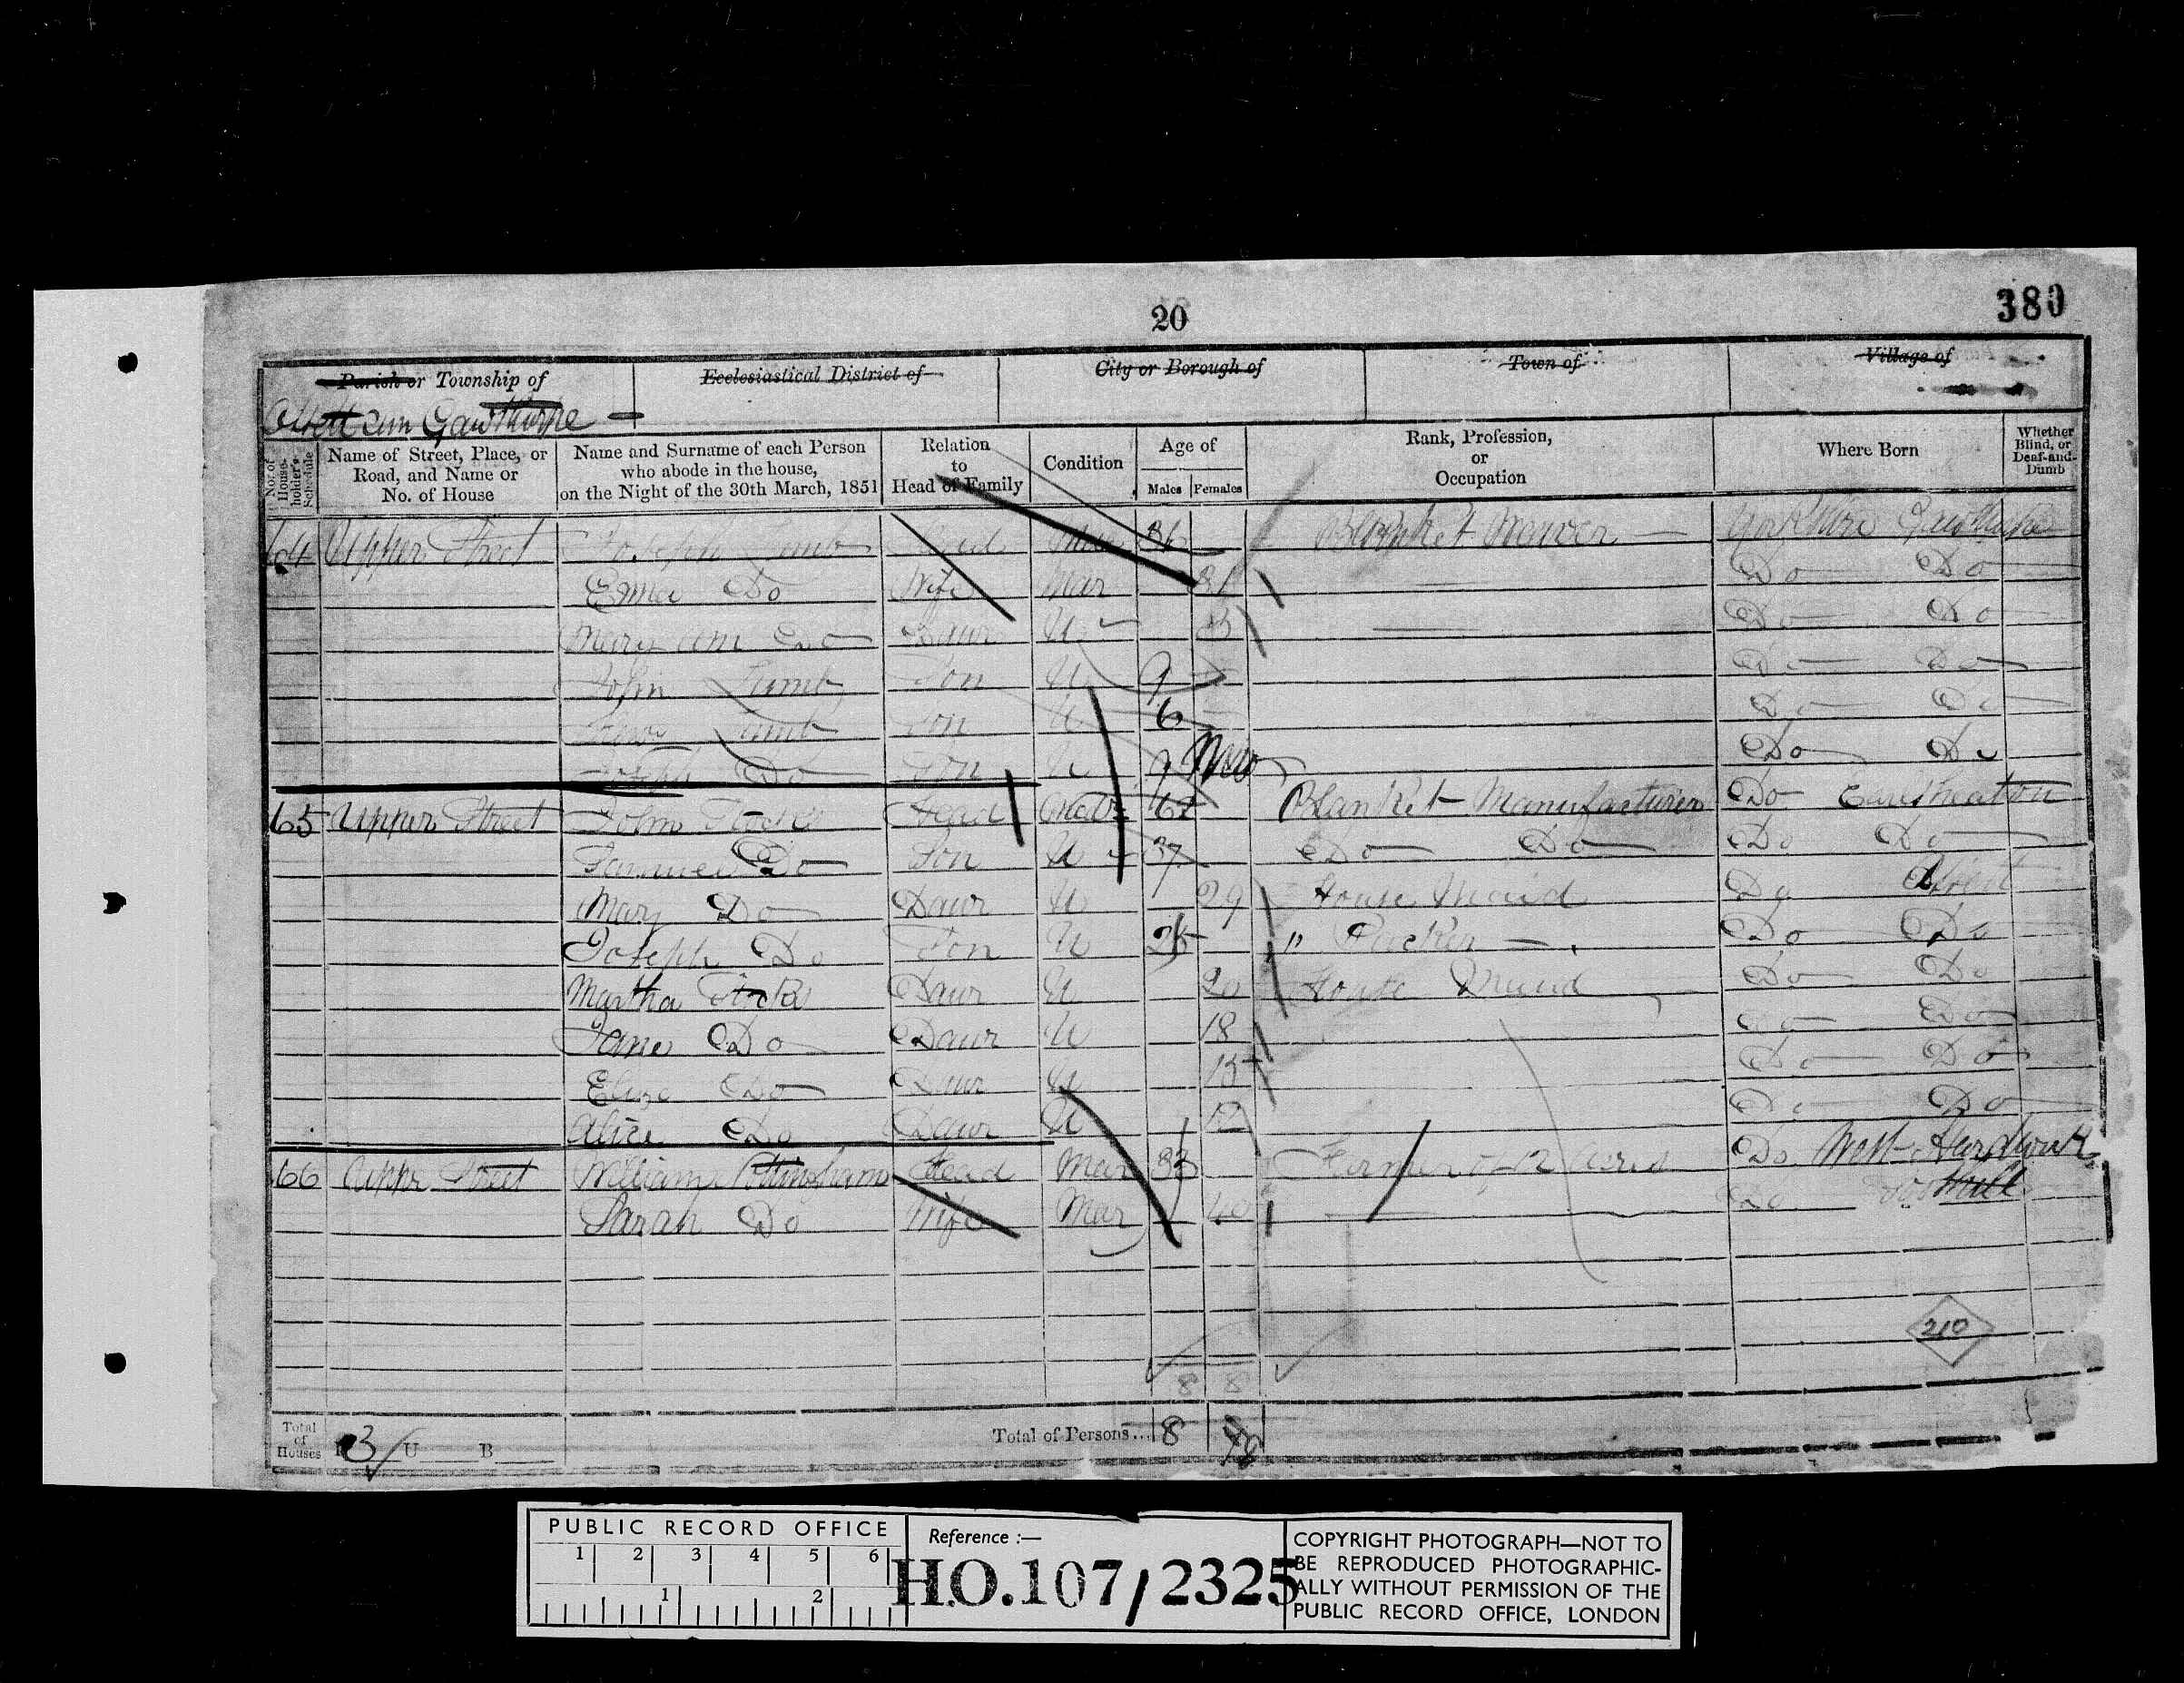 20
380
Parish or Township of
Ecclesiastical District of
City or Borough of
Town of
Village of
Ossett cum Gawthorpe
No. of House-holder's Schedule
Name of Street, Place, or Road, and Name or No. of House
Name and Surname of each Person who abode in the house, on the Night of the 30th March, 1851
Relation to Head of Family
Condition
Age of
Males Females
Rank, Profession, or Occupation
Where Born
Whether Blind, or Deaf-and-Dumb
64 Upper Street Joseph Head Mar 36 Blanket Weaver Yorkshire Gawthorpe
Do Wife Mar Do Do
Mary Ann Do Daur U Do Do
John Son U 9 Do Do
Son U 6 Do Do
Joseph Do Son U 9 Mo Do Do
65 Upper Street John Head 62 Blanket Manufacturer Do Earlsheaton
Do Son U 37 Do Do Do Do
Mary Do Daur U 29 House Maid Do Ossett
Joseph Do Son U 25 " Do Do
Martha Daur U 20 House Maid Do Do
Jane Do Daur U 18 Do Do
Eliza Do Daur U 15 Do Do
Alice Do Daur U 12 Do Do
66 Upper Street William Head Mar 33 Farmer of 12 Acres Do West Hardwick
Sarah Do Wife Mar 40 Do
210
8 8
Total of Houses I 3 U B
Total of Persons... 8 8
PUBLIC RECORD OFFICE
1 2 3 4 5 6
1 2
Reference :—
H.O.107/2325
COPYRIGHT PHOTOGRAPH—NOT TO
BE REPRODUCED PHOTOGRAPHIC-
ALLY WITHOUT PERMISSION OF THE
PUBLIC RECORD OFFICE, LONDON